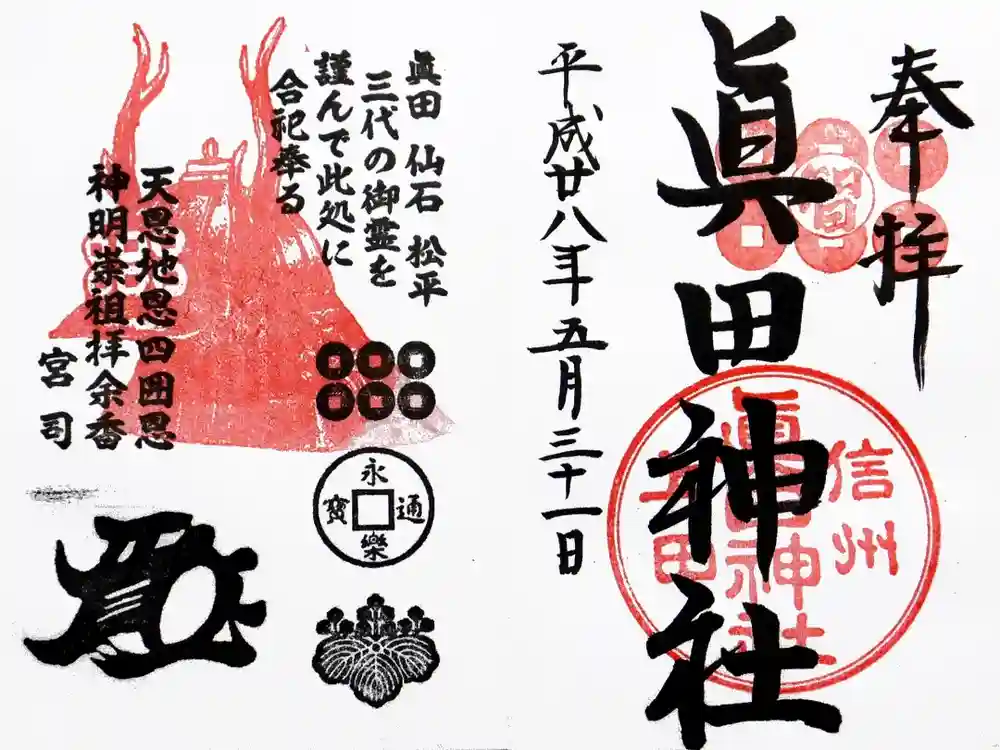 奉拝
眞田神社
信州
眞田神社
上田
平成廿八年五月三十一日
眞田 仙石 松平
三代の御霊を
謹んで此処に
合祀奉る
天恩地恩四囲恩
神明崇祖拝余香
宮司
永樂通寳